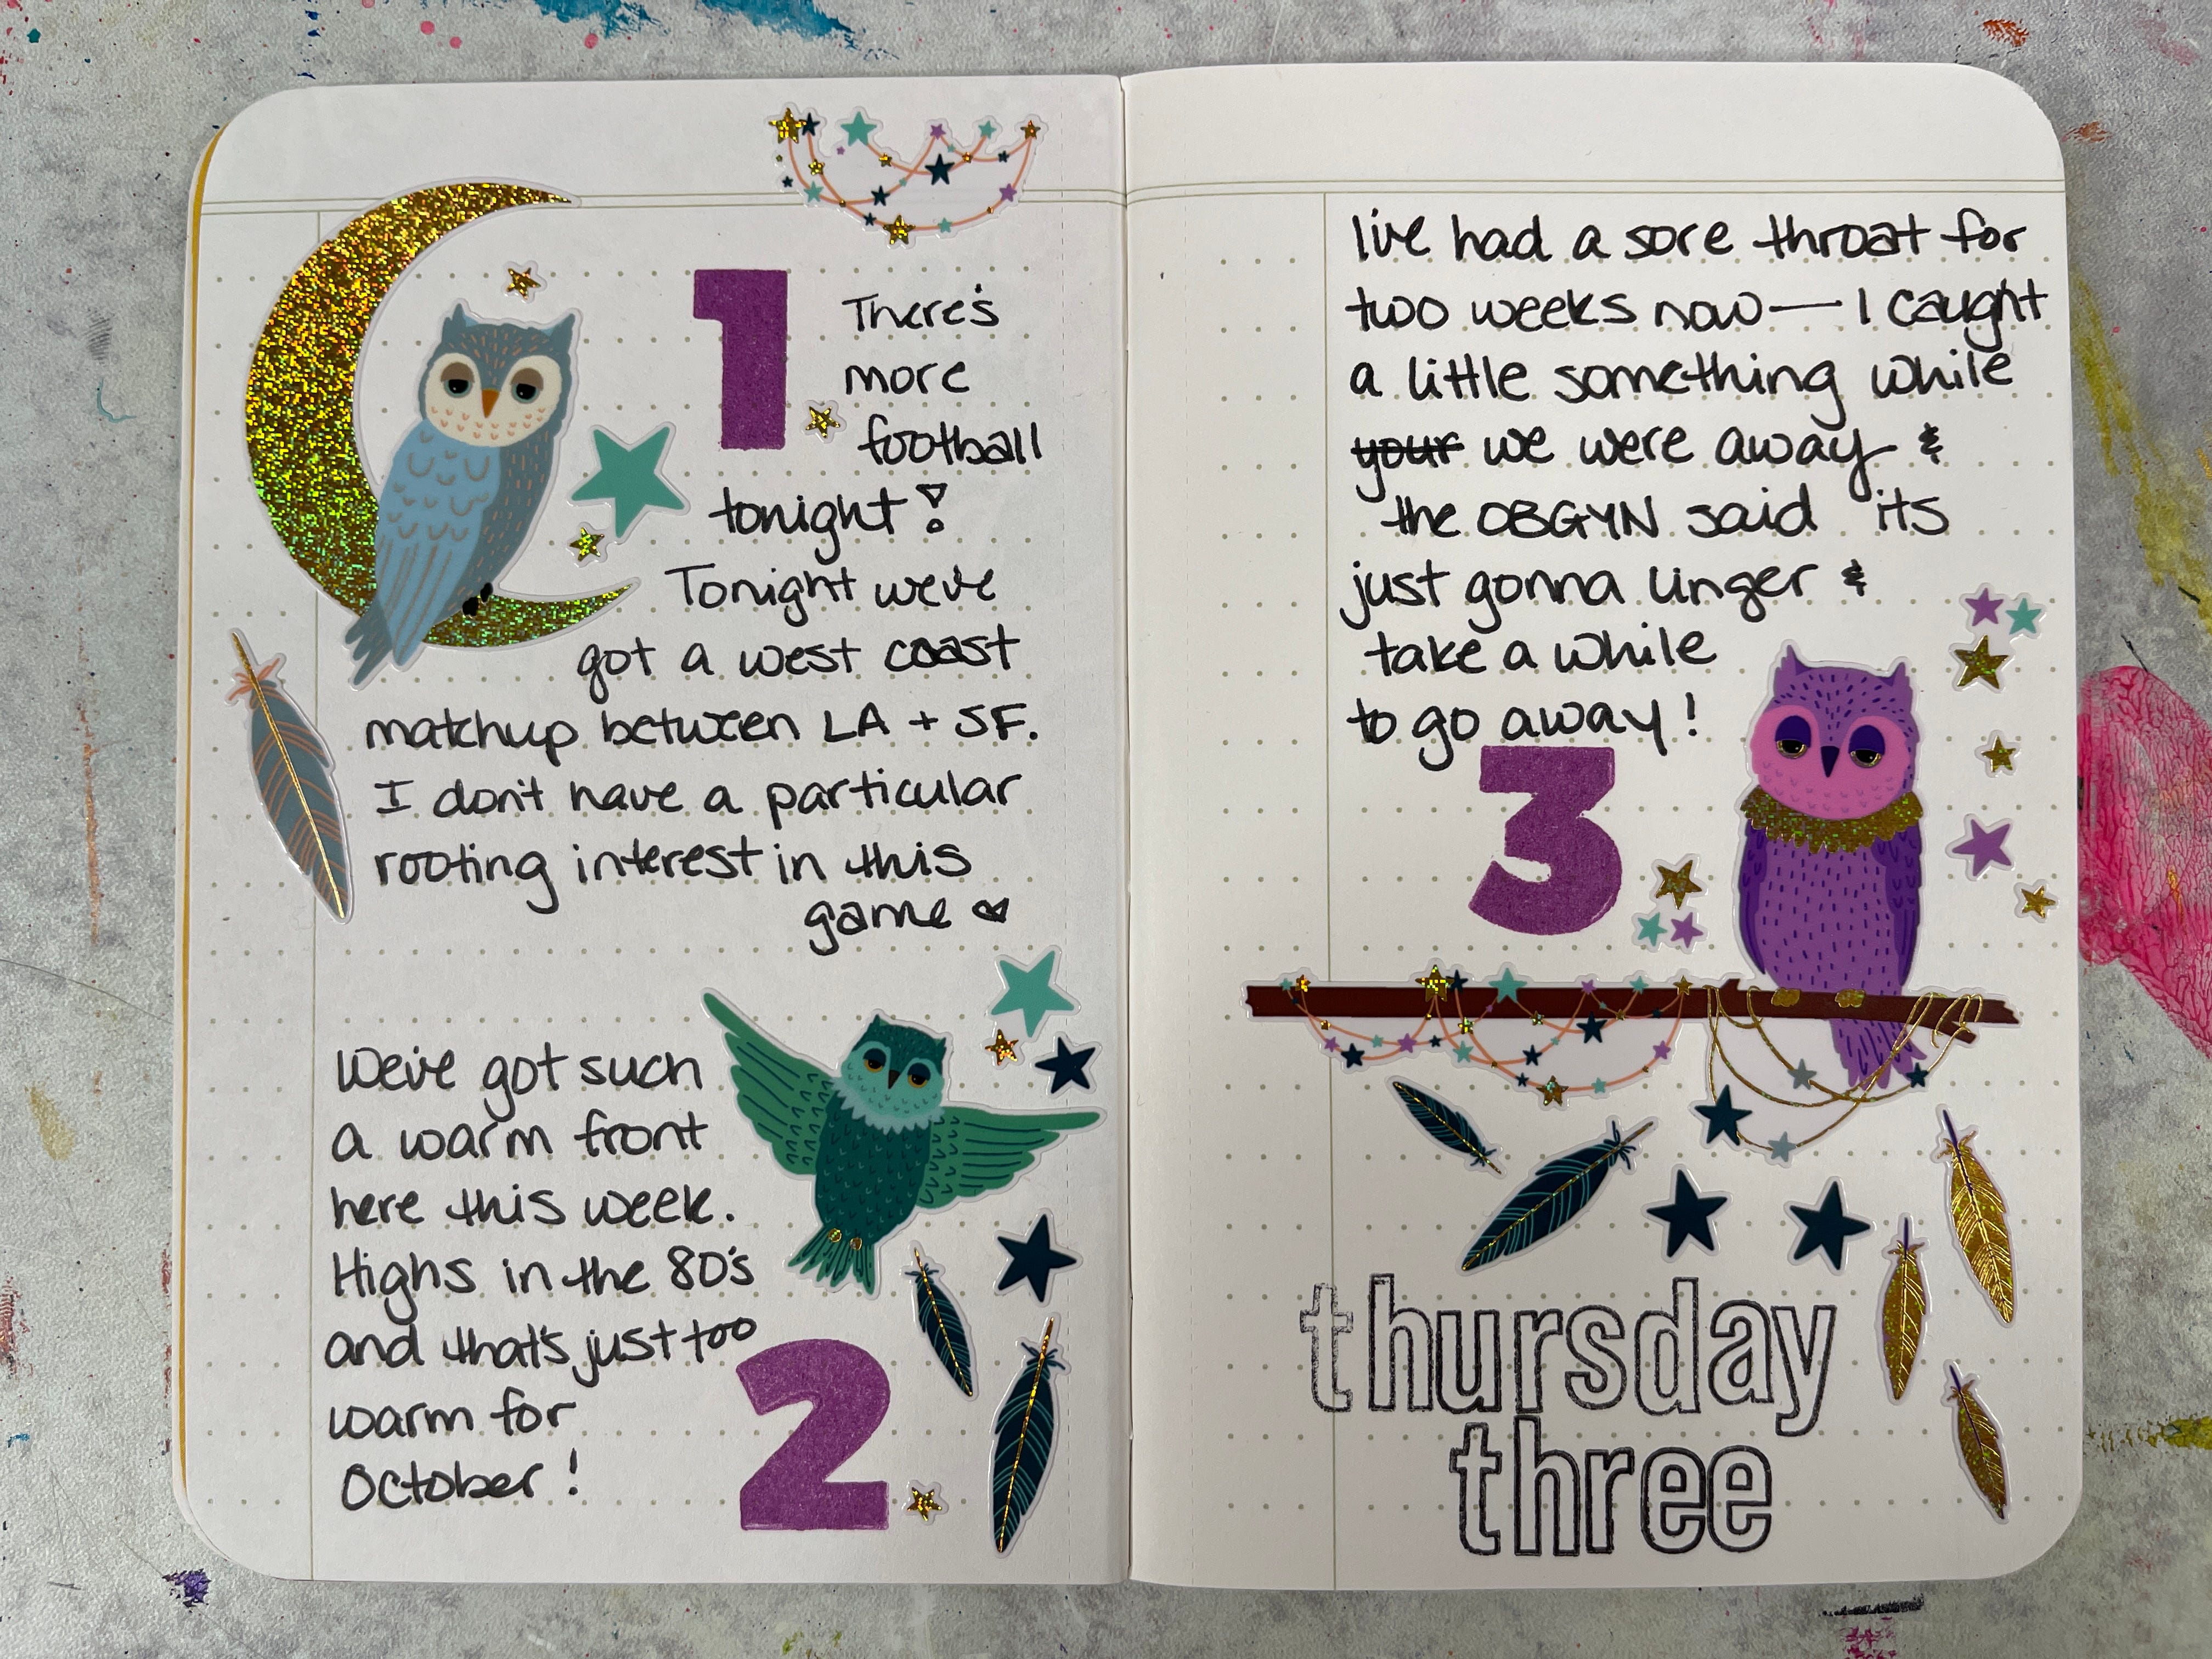 1
There's
more
football
tonight!
Tonight we've
got a west coast
matchup between LA + SF.
I don't have a particular
rooting interest in this
game
We've got such
a warm front
here this week.
Highs in the 80's
and that's just too
warm for
October!
2
I've had a sore throat for
two weeks now — I caught
a little something while
your we were away &
the OBGYN said its
just gonna linger &
take a while
to go away!
3
thursday
three